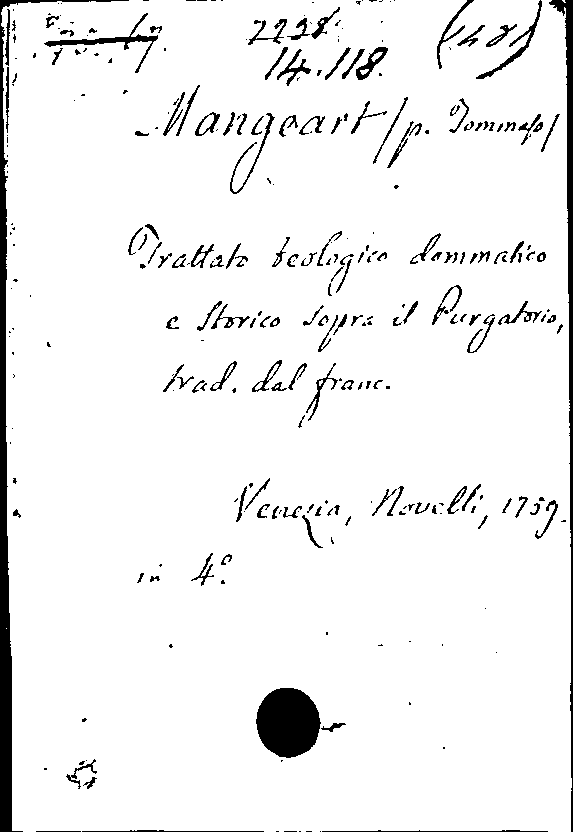 14.118.
Mangeart / p. Tommaso /
Trattato teologico dommatico
e storico sopra il Purgatorio,
trad. dal franc.
Venezia, Novelli, 1759.
in 4°.